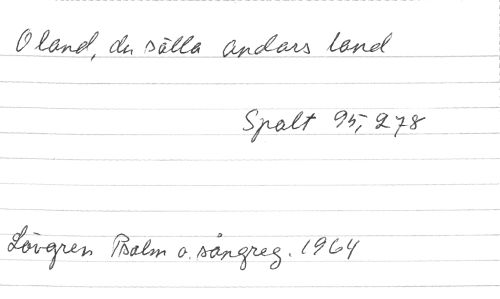 O land, du sälla andars land
Spalt 95, 278
Lövgren Psalm o. sångreg. 1964